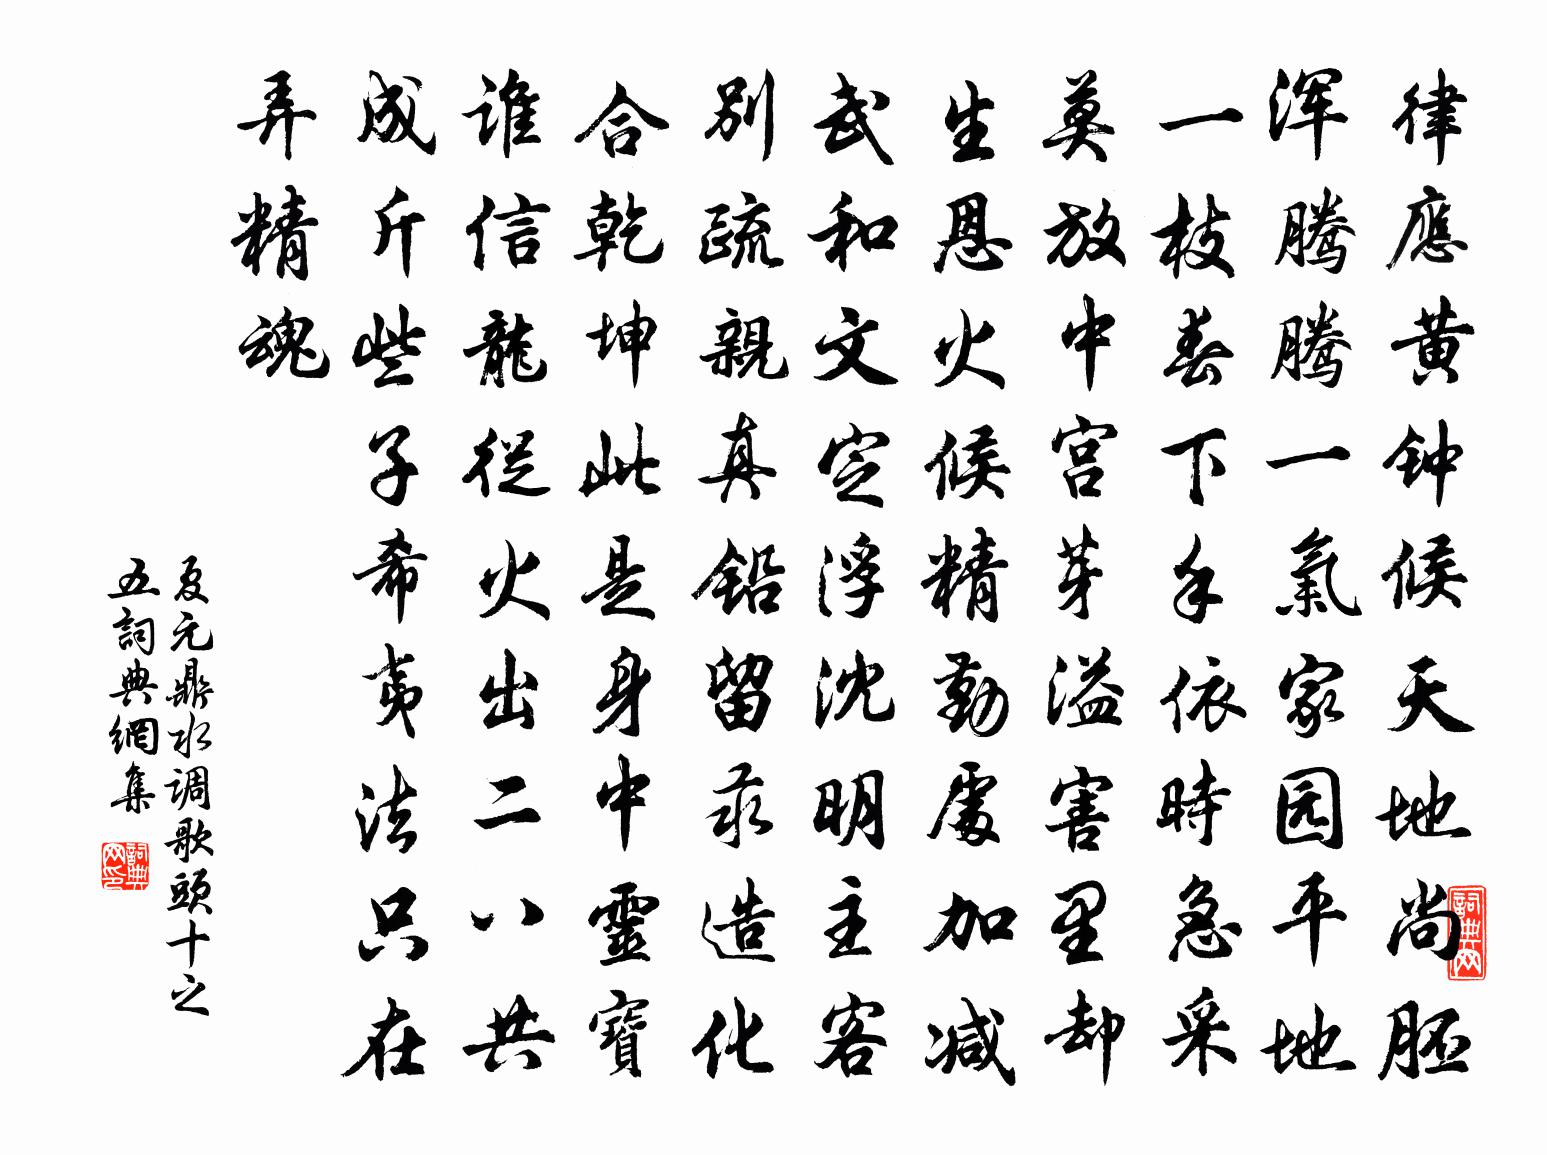 律應黄钟候天地尚胚
浑腾腾一氣家园平地
一枝春下手依時急采
莫放中宫芽溢害里却
生恩火候精勤處加减
武和文定浮沈明主客
别疏親真铅留汞造化
合乾坤此是身中靈寶
谁信龍從火出二八共
成斤些子希夷法只在
弄精魂
夏元鼎水调歌頭十之
五詞典網集
詞典网
詞典网印